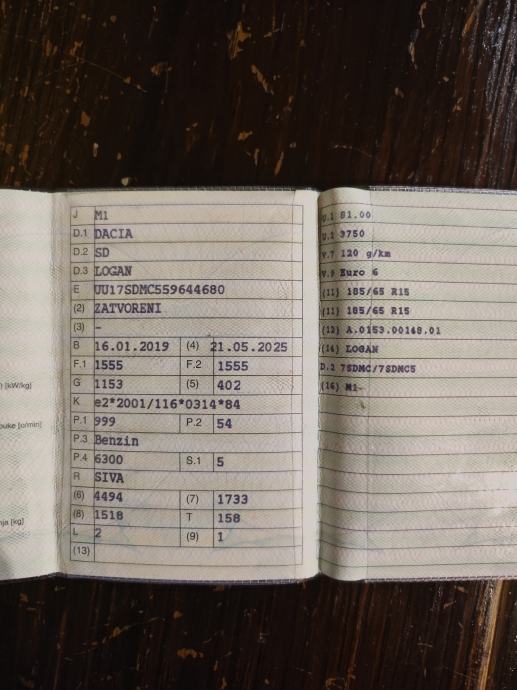 ) [kW/kg]
buke [o/min]
nja [kg]
J M1
D.1 DACIA
D.2 SD
D.3 LOGAN
E UU17SDMC559644680
(2) ZATVORENI
(3) -
B 16.01.2019 (4) 21.05.2025
F.1 1555 F.2 1555
G 1153 (5) 402
K e2*2001/116*0314*84
P.1 999 P.2 54
P.3 Benzin
P.4 6300 S.1 5
R SIVA
(6) 4494 (7) 1733
(8) 1518 T 158
L 2 (9) 1
(13)
U.1 81.00
U.2 3750
V.7 120 g/km
V.9 Euro 6
(11) 185/65 R15
(11) 185/65 R15
(12) A.0153.00148.01
(14) LOGAN
D.2 7SDMC/7SDMC5
(16) M1-